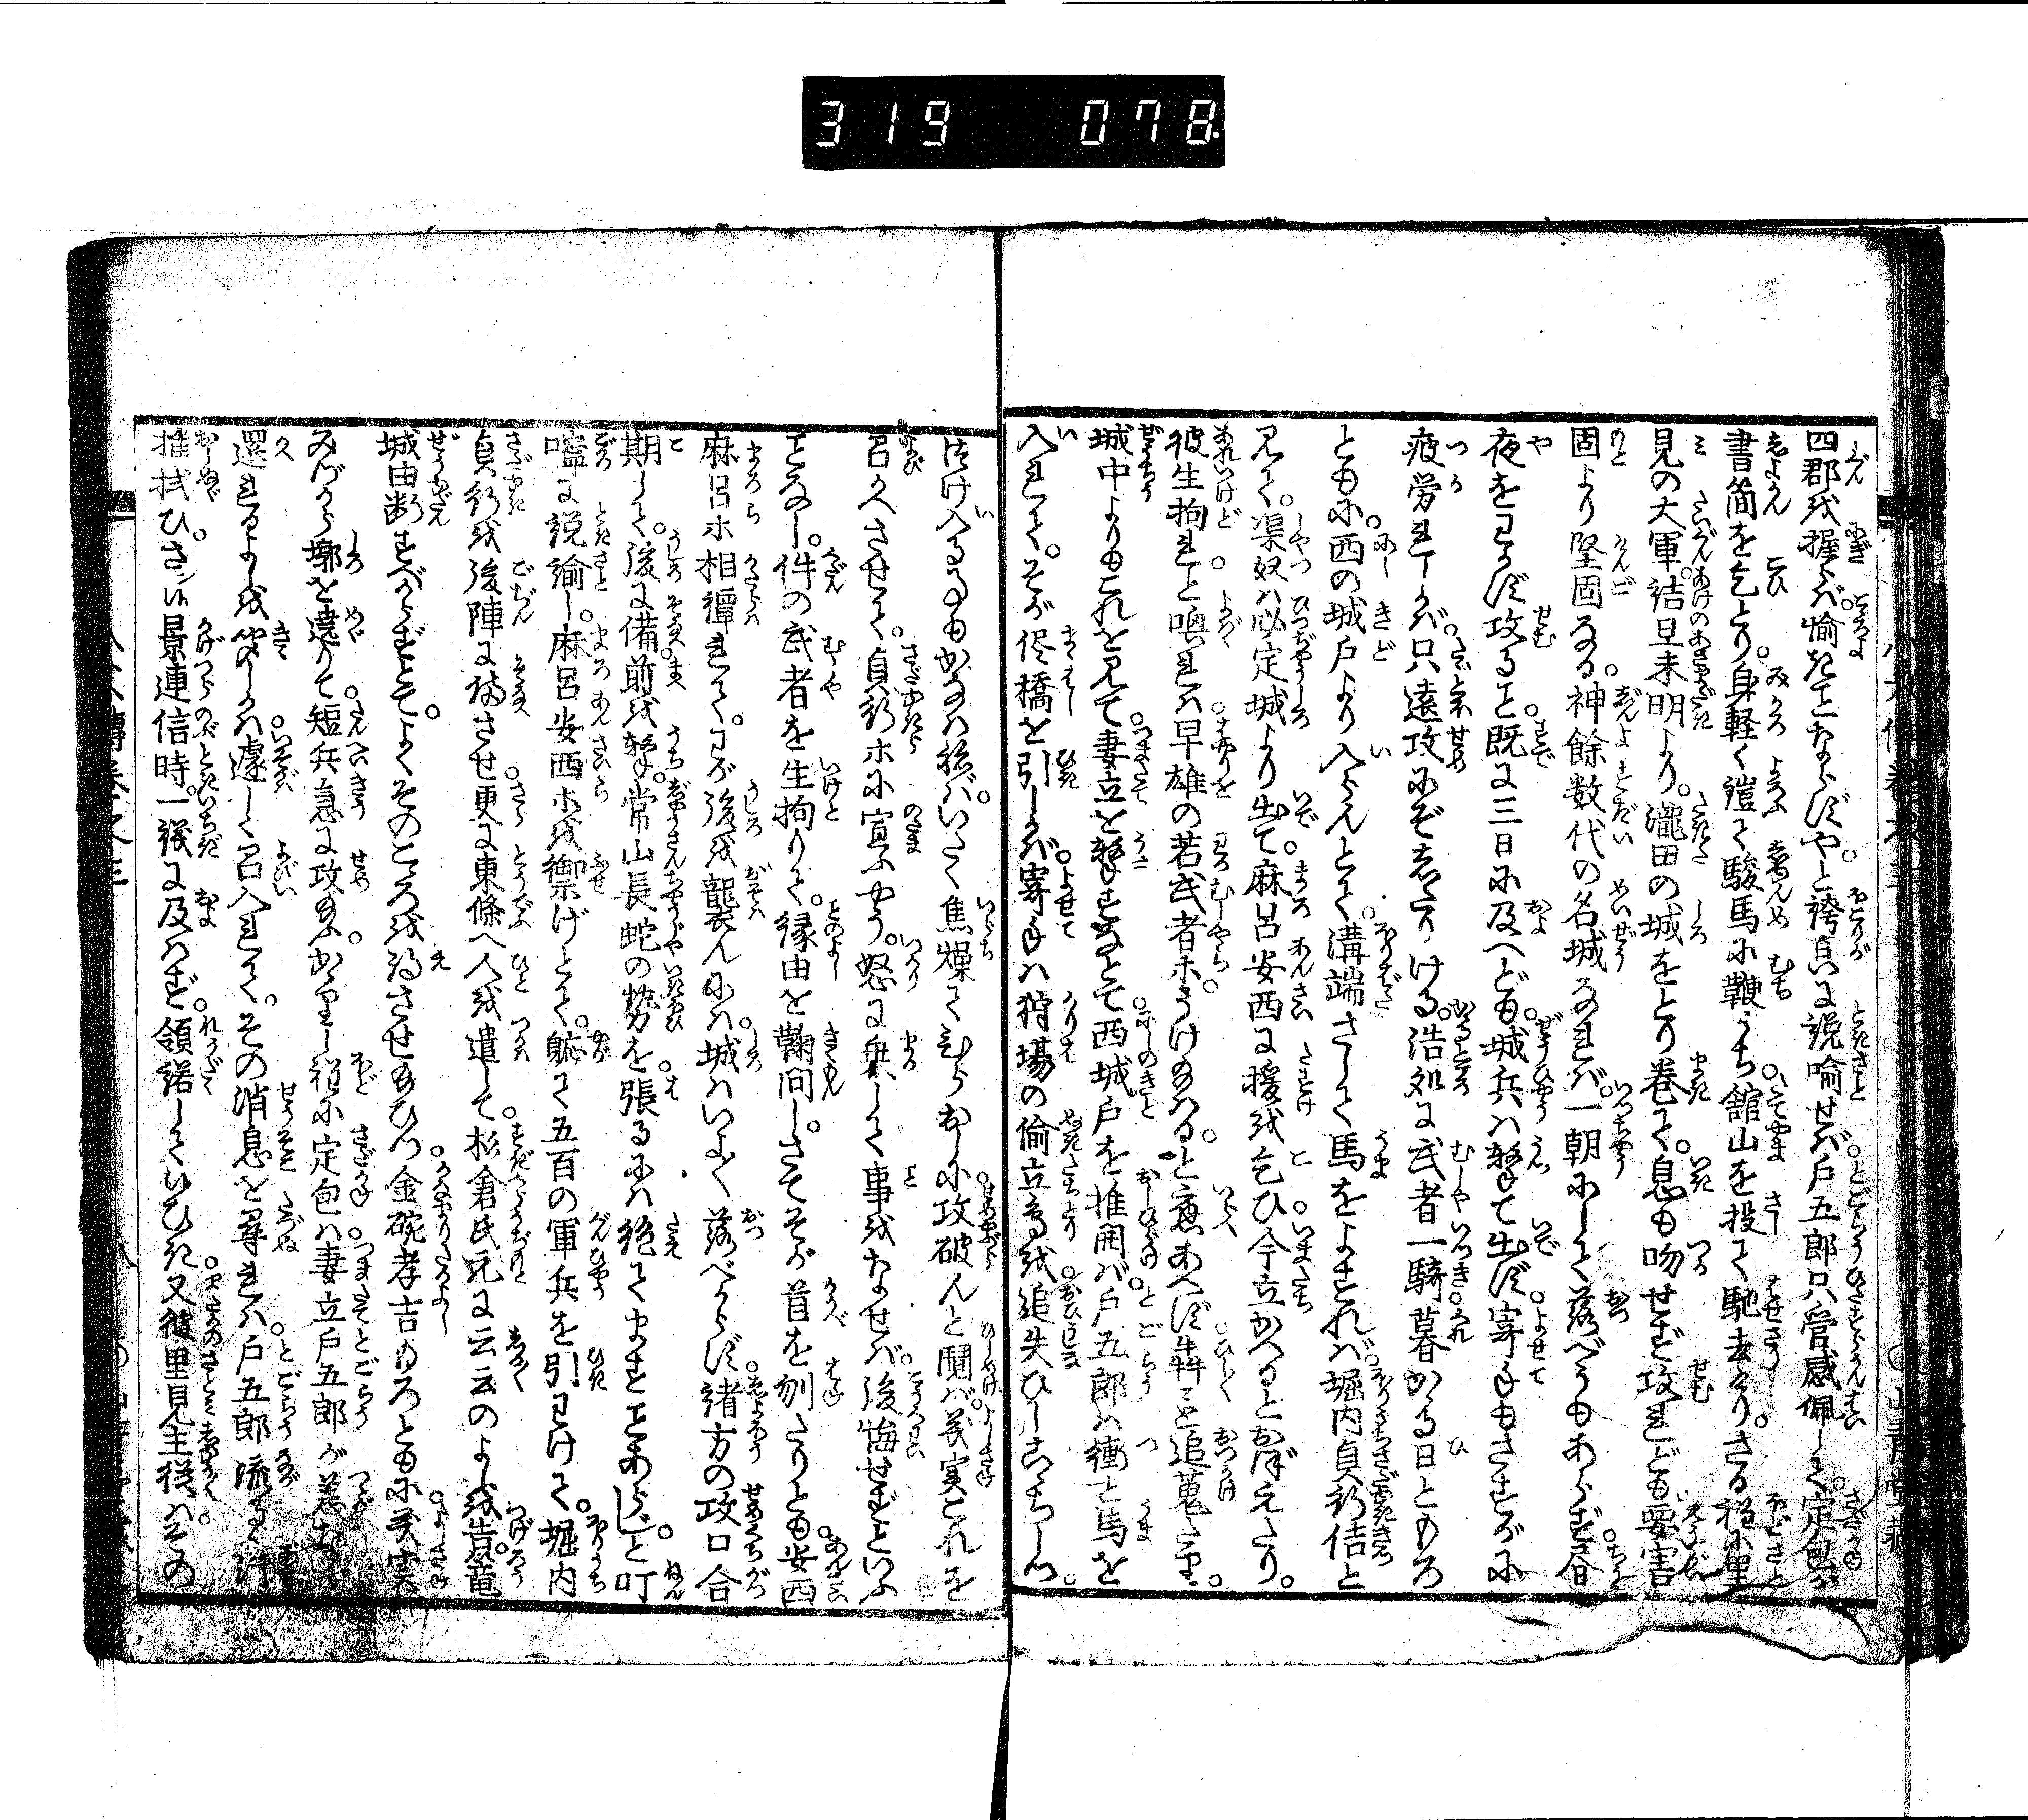 319 078
四郡を握らば愉きことならずや。と誇㒵に説喩せば。戸五郎只管感佩して。定包が
書簡を乞とり。身軽く鎧て駿馬に鞭うち。舘山を投て馳去けり。さる程に里
見の大軍。詰旦未明より。瀧田の城をとり巻て。息も吻せず攻れども。要害
固より堅固なる。神餘数代の名城なれば。一朝にして落べうもあらず。昼
夜をわかず攻ること。既に三日に及べども。城兵は撃て出ず。寄手もさすがに
疲労れしかば。只遠攻にぞしたりける。浩処に武者一騎。暮かかる日ともろ
ともに。西の城戸より入らんとて。溝端さして馬をよすれば。堀内貞行佶と
見て。渠奴は必定城より出て。麻呂安西に援を乞ひ。今立かへるとおぼえたり。
彼生拘れと喚れば。早雄の若武者等。うけ給はる。と應あへず。犇々と追蒐たり。
城中よりもこれを見て。妻立を撃すなとて。西城戸を推開ば。戸五郎は衝と馬を
入れて。そが侭橋を引しかば。寄手は狩場の偷立鳥を追失ひしここちしつ。
つけ入るべうもかなはねば。いたく焦燥てひらおしに。攻破んと鬩ば。義実これを
召かへさせて。貞行等に宣ふやう。怒に乗して事をなせば。後悔せずといふ
ことなし。件の武者を生拘りて。縁由を鞠問し。さてそが首を刎たりとも。安西
麻呂等相譚れて。わが後を襲んには。城はいよいよ落べからず。諸方の攻口合
期して。後に備。前を撃。常山長蛇の勢を。張るには絶てますことあらじ。と叮
嚀に説諭し。麻呂安西等を禦げとて。軈て五百の軍兵を引わけて。堀内
貞行を後陣に備させ。更に東條へ人を遣して。杉倉氏元に云云のよしを告。篭
城由断すべからずとて。よくそのこころを得させ給ひつ。金碗孝吉もろともに。義実
みづから墎を遶りて。短兵急に攻給ふ。かくりし程に。定包は妻立戸五郎が
還れるよしを聞しかば。遽しく召入れて。その消息を尋れば。戸五郎流るる汗
推拭ひ。さン候。景連信時。一議に及ばず。領諾していひき。又彼里見主従は。その